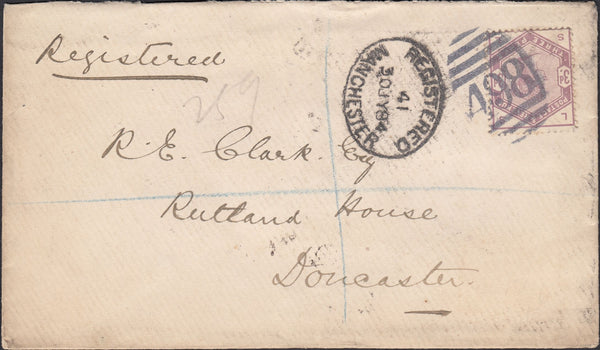 Registered
REGISTERED
41
30 JY 84
MANCHESTER
498
259
R. E. Clark. Esq
Rutland House
Doncaster.
S
L